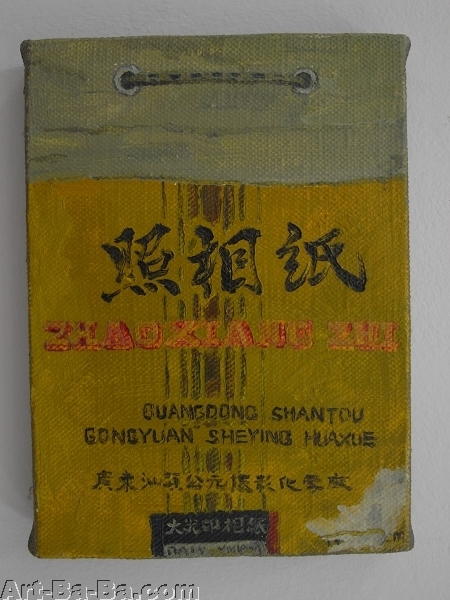 照相紙
ZHAOXIANG ZHI
GUANGDONG SHANTOU
GONGYUAN SHEYING HUAXUE
廣東汕頭公元攝影化學廠
大光印相紙
Art-Ba-Ba.com
Art-Ba-Ba.com